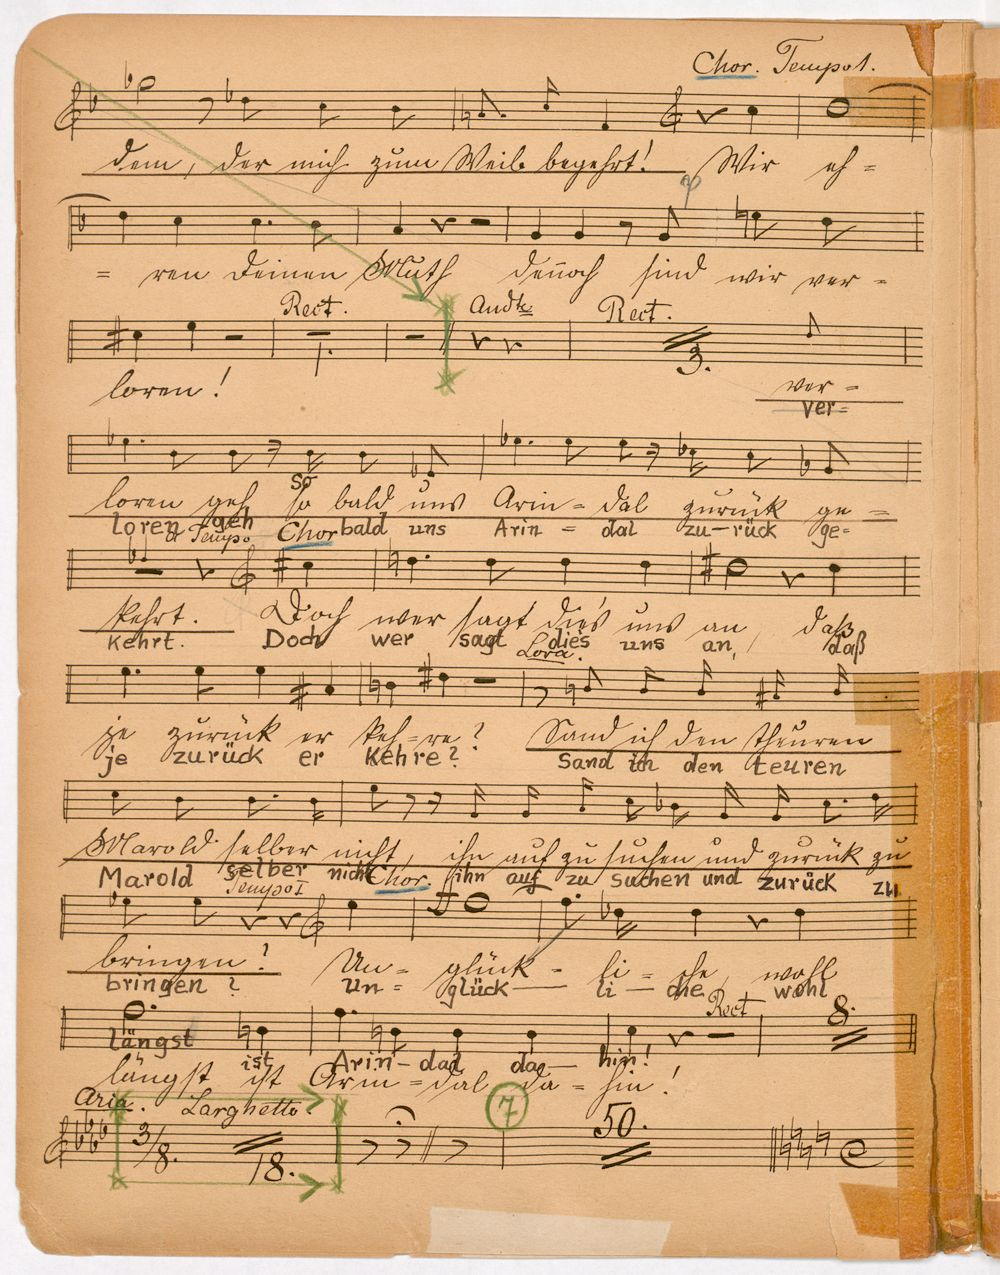 Chor. Tempo 1.
dem, der mich zum Weib begehrt! Wir eh =
= ren Deinen Muth deñoch sind wir ver =
Rect. Andte Rect.
1. 3.
loren! ver =
ver=
loren geh so bald uns Arin = dal zurück ge =
So
loren geh bald uns Arin = dal zu-rück ge=
a Tempo Chor
kehrt. Doch wer sagt dies uns an, daß
kehrt. Doch wer sagt dies uns an, daß
Lora.
je zurück er keh = re? Sand ich den theuren
je zurück er kehre? Sand ich den teuren
Marold selber nicht, ihn auf zu suchen und zurück zu
Marold selber nicht ihn auf zu suchen und zurück zu
Tempo I Chor.
bringen? Un = glück - li = che, wohl
bringen? un = glück - li - che wohl
Rect 8.
längst ist Arin - dal da - hin!
längst ist Arin = dal da = hin!
Aria. Larghetto. 7 50.
3/8. 18.